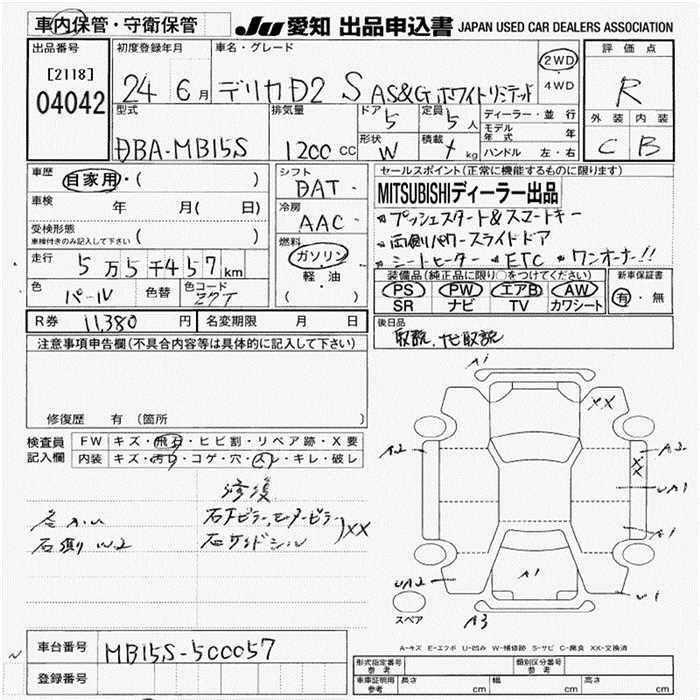 車内保管・守衛保管
JU 愛知 出品申込書 JAPAN USED CAR DEALERS ASSOCIATION
出品番号
[2118]
04042
初度登録年月
24 6 月
車名・グレード
デリカD2 S AS&G ホワイトリミテッド
2WD
4WD
評価点
R
外装 内装
C B
型式
DBA-MB15S
排気量
1200 cc
ドア
5
定員
5 人
形状
W
積載
kg
ディーラー・並行
モデル年式 年
ハンドル 左・右
車歴
自家用・( )
車検 年 月( 日)
受検形態
車検付きのみ記入して下さい ( )
走行
5万5千457km
色
パール
色替
色コード
ZQT
シフト
DAT
冷房
AAC
燃料
ガソリン
軽・油
( )
セールスポイント(正常に機能するものに限ります)
MITSUBISHIディーラー出品
プッシュスタート&スマートキー
両側パワースライドドア
シートヒーター ETC ワンオーナー!!
装備品(純正品に限り○をつけてください)
PS PW エアB AW
SR ナビ TV カワシート
新車保証書
有・無
R券 11,380 円
名変期限 月 日
後日品
取説、ナビ取説
注意事項申告欄(不具合内容等は具体的に記入して下さい)
修復歴 有(箇所 )
検査員
記入欄
FW キズ・飛石・ヒビ割・リペア跡・X要
内装 キズ・汚れ・コゲ・穴・凹・キレ・破レ
修復
右Fピラー、センターピラー
右サイドシル
)XX
右側 W2
A1
XX
A2
A2
XX
UA1
A1
UA2
A1
U1
A3
スペア
A-キズ E-エクボ U-凹み W-補修跡 S-サビ C-腐食 XX-交換済
車台番号
MB15S-500057
登録番号
形式指定番号 参考
類別区分番号 参考
車庫証明用 参考
長さ cm
幅 cm
高さ cm